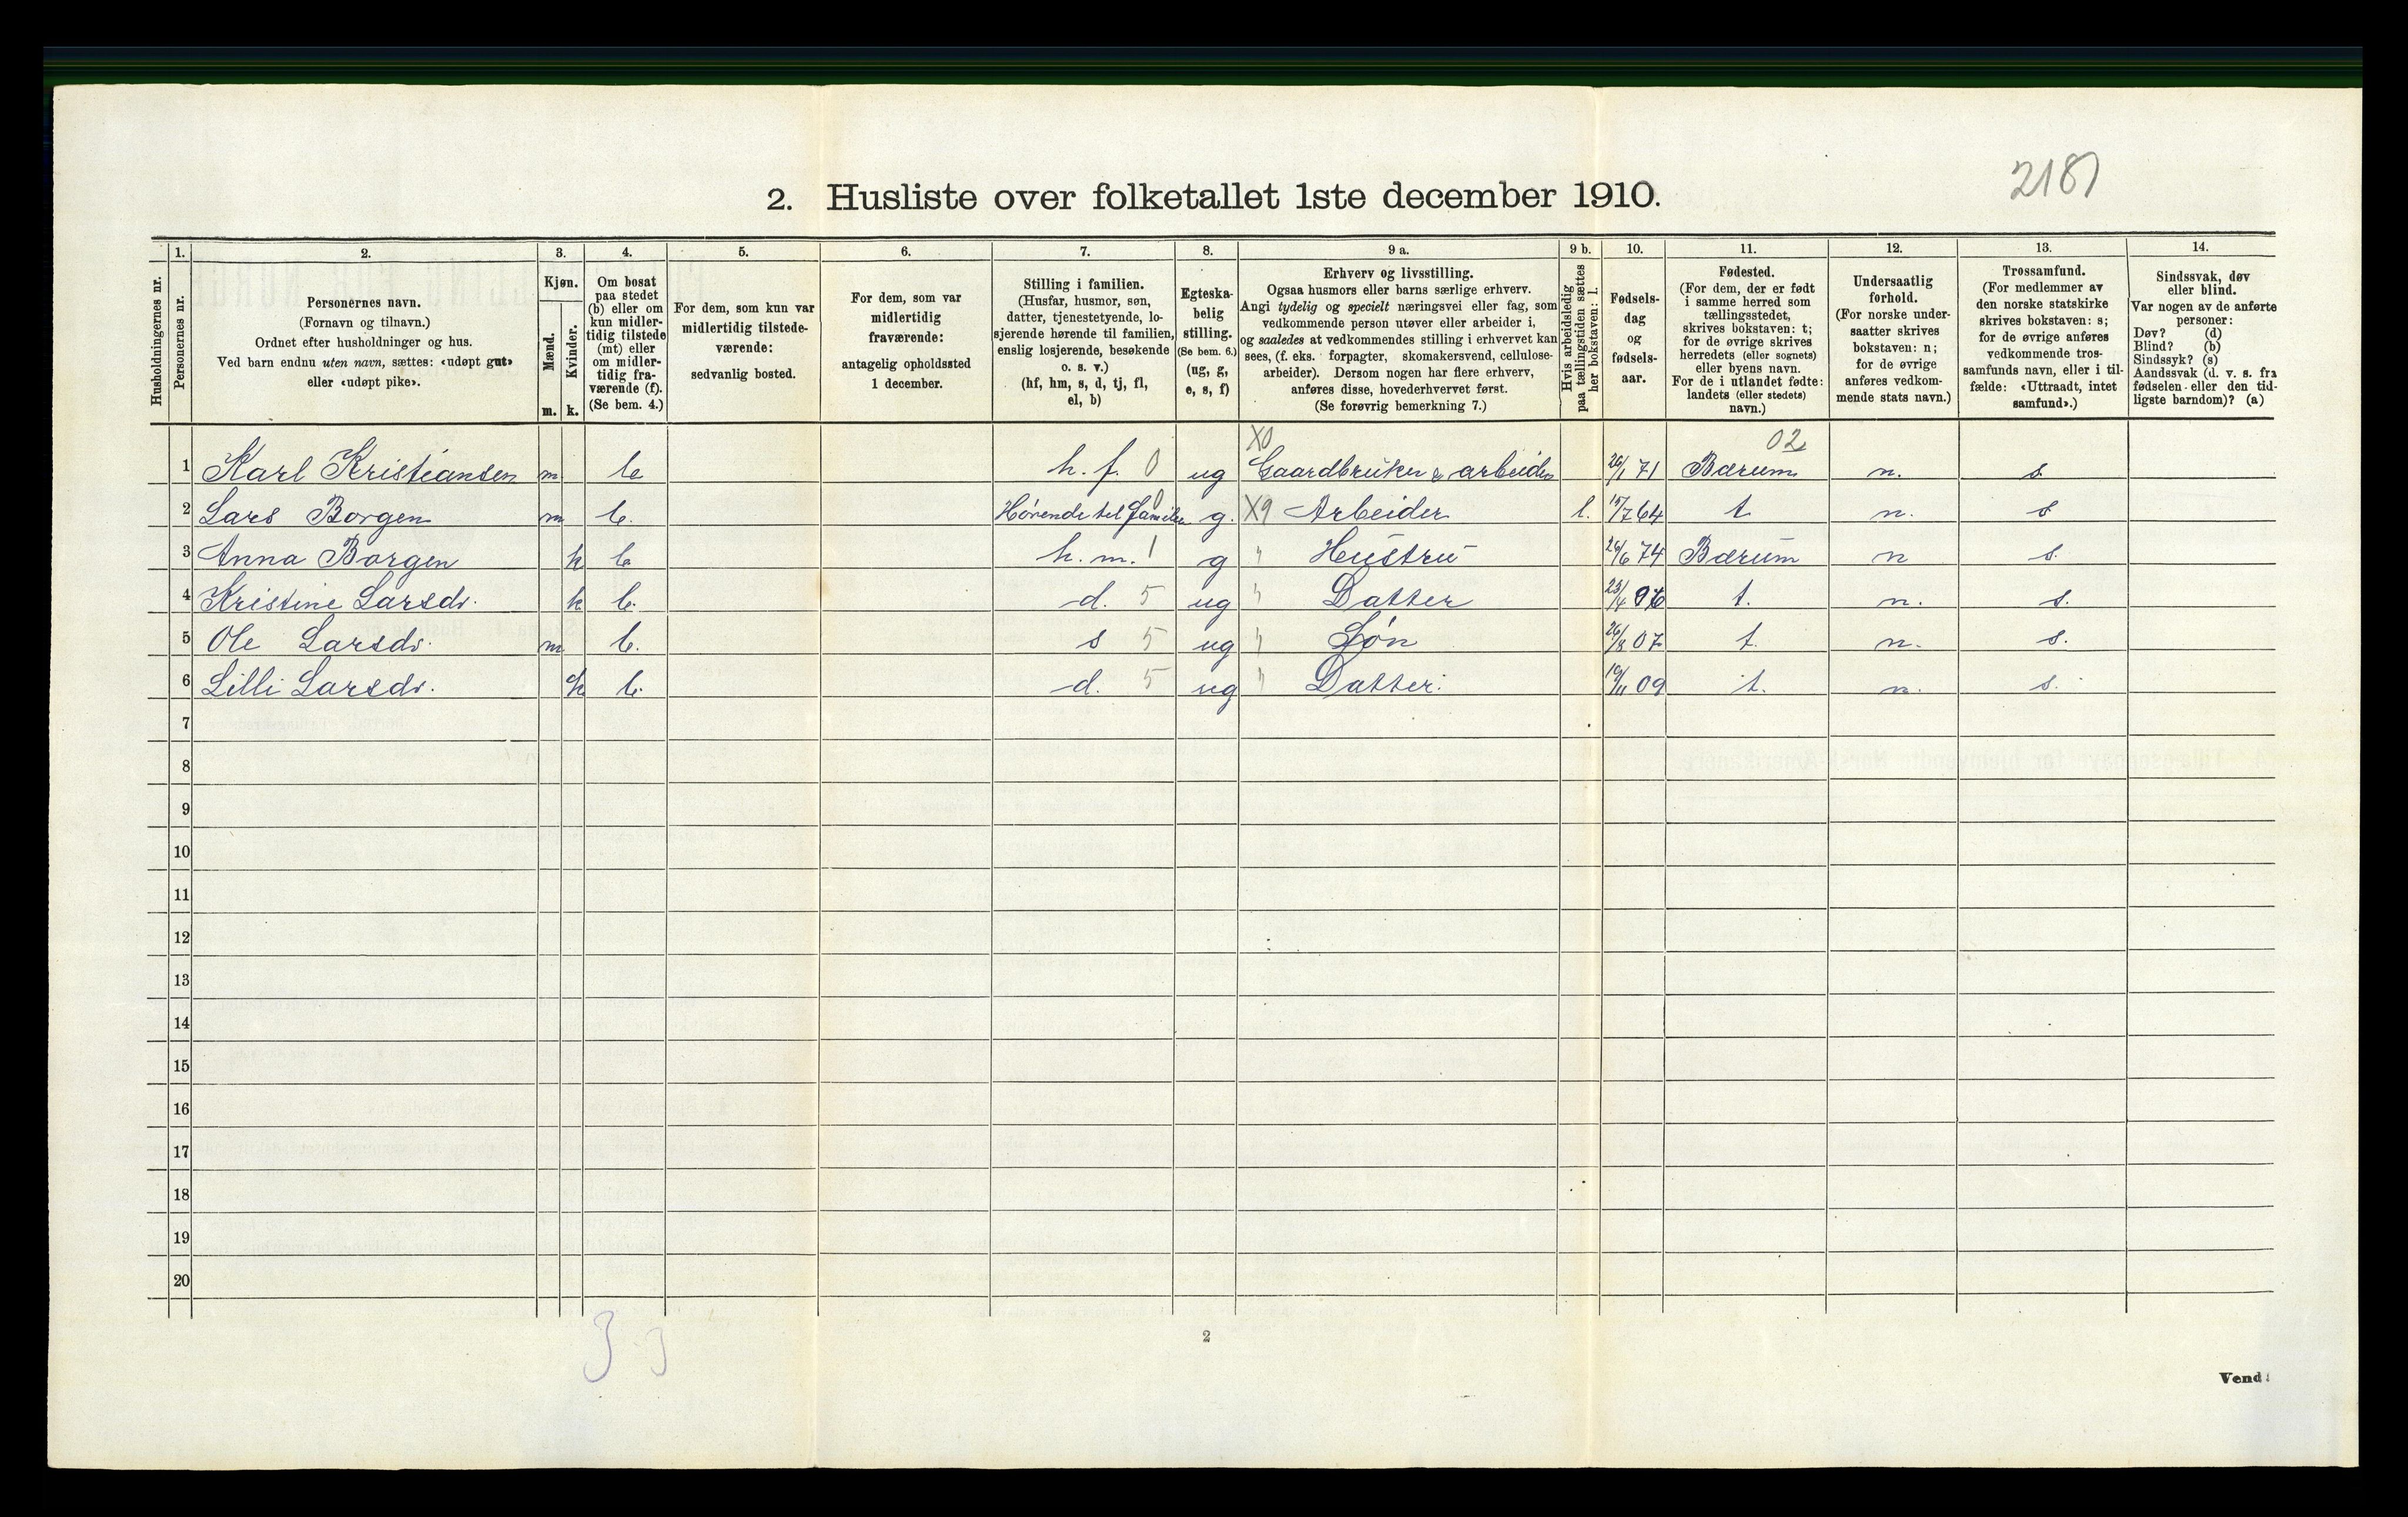 2187
2. Husliste over folketallet 1ste december 1910.
Husholdningernes nr.
1.
Personernes nr.
2.
Personernes navn.
(Fornavn og tilnavn.)
Ordnet efter husholdninger og hus.
Ved barn endnu uten navn, sættes: «udøpt gut»
eller «udøpt pike».
3.
Kjøn.
Mænd.
m.
Kvinder.
k.
4.
Om bosat
paa stedet
(b) eller om
kun midler-
tidig tilstede
(mt) eller
om midler-
tidig fra-
værende (f).
(Se bem. 4.)
5.
For dem, som kun var
midlertidig tilstede-
værende:
sedvanlig bosted.
6.
For dem, som var
midlertidig
fraværende:
antagelig opholdssted
1 december.
7.
Stilling i familien.
(Husfar, husmor, søn,
datter, tjenestetyende, lo-
sjerende hørende til familien,
enslig losjerende, besøkende
o. s. v.)
(hf, hm, s, d, tj, fl,
el, b)
8.
Egteska-
belig
stilling.
(Se bem. 6.)
(ug, g,
e, s, f)
9 a.
Erhverv og livsstilling.
Ogsaa husmors eller barns særlige erhverv.
Angi tydelig og specielt næringsvei eller fag, som
vedkommende person utøver eller arbeider i,
og saaledes at vedkommendes stilling i erhvervet kan
sees, (f. eks. forpagter, skomakersvend, cellulose-
arbeider). Dersom nogen har flere erhverv,
anføres disse, hovederhvervet først.
(Se forøvrig bemerkning 7.)
9 b.
Hvis arbeidsledig
paa tællingstiden sættes
her bokstaven: l.
10.
Fødsels-
dag
og
fødsels-
aar.
11.
Fødested.
(For dem, der er født
i samme herred som
tællingsstedet,
skrives bokstaven: t;
for de øvrige skrives
herredets (eller sognets)
eller byens navn.
For de i utlandet fødte:
landets (eller stedets)
navn.)
12.
Undersaatlig
forhold.
(For norske under-
saatter skrives
bokstaven: n;
for de øvrige
anføres vedkom-
mende stats navn.)
13.
Trossamfund.
(For medlemmer av
den norske statskirke
skrives bokstaven: s;
for de øvrige anføres
vedkommende tros-
samfunds navn, eller i til-
fælde: «Uttraadt, intet
samfund».)
14.
Sindssvak, døv
eller blind.
Var nogen av de anførte
personer:
Døv? (d)
Blind? (b)
Sindssyk? (s)
Aandssvak (d. v. s. fra
fødselen eller den tid-
ligste barndom)? (a)
X0 02
1 Karl Kristiansen m b h. f. 0 ug Gaardbruker & arbeider 26/1 71 Bærum n. s
2 Lars Borgen m b. Hørende til familien 0 g. X9 Arbeider l. 15/7 64 t n. s
3 Anna Borgen k b h. m. 1 g " Hustru 26/6 74 Bærum n s.
4 Kristine Larsdr. k b. d. 5 ug " Datter 23/4 06 t. n. s.
5 Ole Larsdr. m b. s 5 ug " Søn 26/8 07 t. n. s.
6 Lilli Larsdr. k b. d. 5 ug " Datter. 19/11 09 t. n. s.
7
8
9
10
11
12
13
14
15
16
17
18
19
20
3 3
2
Vend